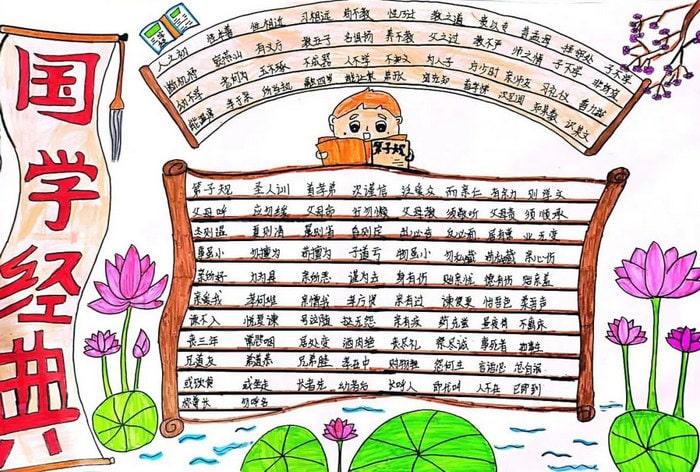 国学经典
三字经
人之初 性本善 性相近 习相远 苟不教 性乃迁 教之道 贵以专 昔孟母 择邻处 子不学
断机杼 窦燕山 有义方 教五子 名俱扬 养不教 父之过 教不严 师之惰 子不学 非所宜
幼不学 老何为 玉不琢 不成器 人不学 不知义 为人子 方少时 亲师友 习礼仪 香九龄
能温席 孝于亲 所当执 融四岁 能让梨 弟于长 宜先知 首孝悌 次见闻 知某数 识某文
弟子规
弟子规 圣人训 首孝弟 次谨信 泛爱众 而亲仁 有余力 则学文
父母呼 应勿缓 父母命 行勿懒 父母教 须敬听 父母责 须顺承
冬则温 夏则清 晨则省 昏则定 出必告 反必面 居有常 业无变
事虽小 勿擅为 苟擅为 子道亏 物虽小 勿私藏 苟私藏 亲心伤
亲所好 力为具 亲所恶 谨为去 身有伤 贻亲忧 德有伤 贻亲羞
亲爱我 孝何难 亲憎我 孝方贤 亲有过 谏使更 怡吾色 柔吾声
谏不入 悦复谏 号泣随 挞无怨 亲有疾 药先尝 昼夜侍 不离床
丧三年 常悲咽 居处变 酒肉绝 丧尽礼 祭尽诚 事死者 如事生
兄道友 弟道恭 兄弟睦 孝在中 财物轻 怨何生 言语忍 忿自泯
或饮食 或坐走 长者先 幼者后 长呼人 即代叫 人不在 己即到
称尊长 勿呼名